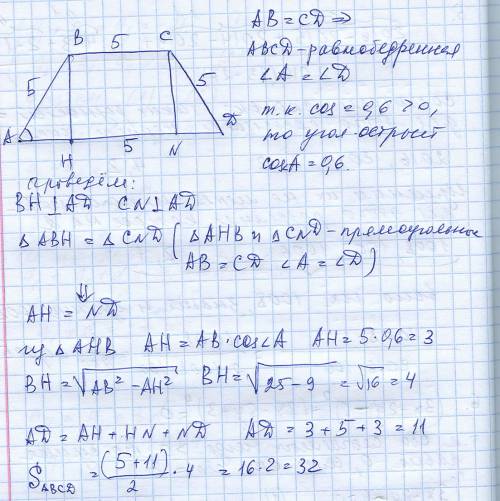 B 5 C
5
5
A
D
H
5
N
AB = CD ⇒
ABCD - равнобедренная
∠A = ∠D
т.к. cos = 0,6 > 0,
то угол острый
cosA = 0,6.
проведём:
BH ⊥ AD CN ⊥ AD
Δ ABH = Δ CND ( Δ AHB и Δ CND - прямоугольные
AB = CD ∠A = ∠D )
⇓
AH = ND
из Δ AHB AH = AB · cos∠A AH = 5 · 0,6 = 3
BH = √AB² - AH² BH = √25 - 9 = √16 = 4
AD = AH + HN + ND AD = 3 + 5 + 3 = 11
S ABCD = (5 + 11) / 2 · 4 = 16 · 2 = 32